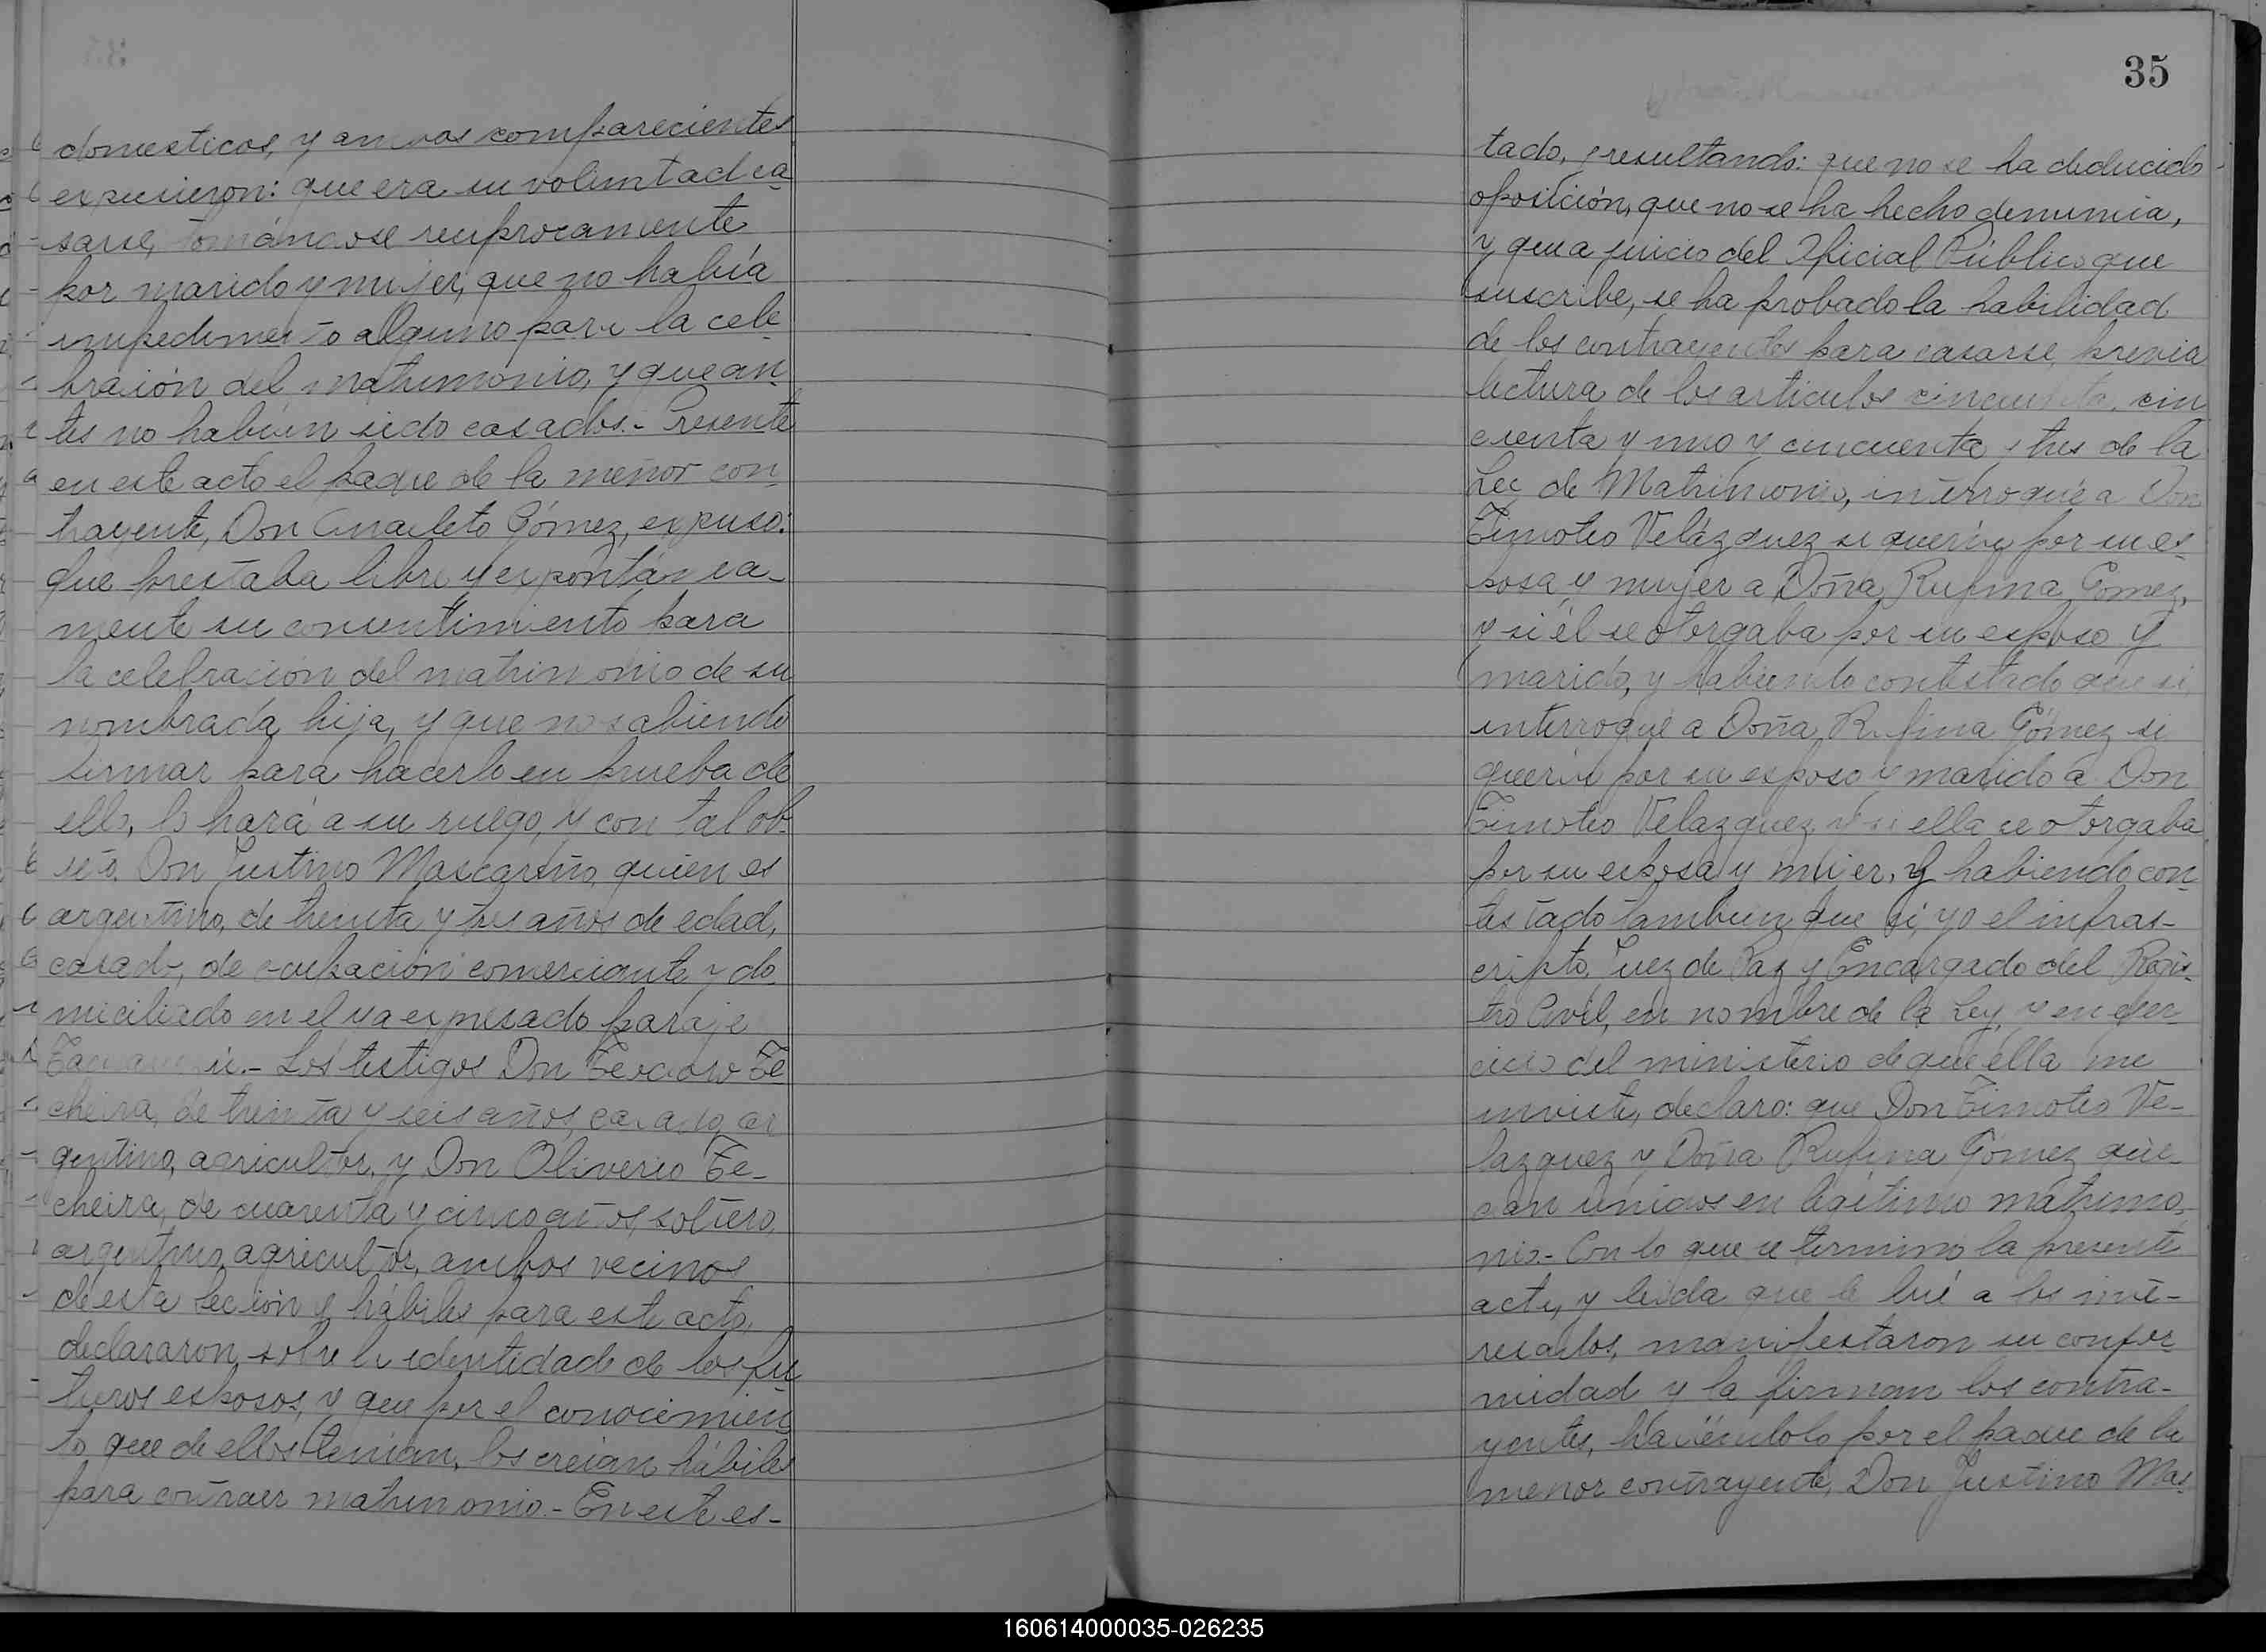 domesticos, y ambos comparecientes
expusieron: que era su voluntad ca-
sarse, tomándose reciprocamente
por marido y mujer, que no había
impedimento alguno para la cele-
bración del matrimonio, y que an-
tes no habían sido casados.- Presente
en este acto el padre de la menor con-
trayente, Don Anacleto Gómez, expuso:
que prestaba libre y expontánea-
mente su consentimiento para
la celebración del matrimonio de su
nombrada hija, y que no sabiendo
firmar para hacerlo en prueba de
ello, lo hará a su ruego, y con tal ob-
jeto Don Justino Mascareño, quien es
argentino, de treinta y tres años de edad,
casado, de ocupación comerciante y do-
miciliado en el ya expresado paraje
Los testigos Don Teodoro Te-
cheira, de treinta y seis años, casado, ar-
gentino, agricultor, y Don Oliverio Te-
cheira, de cuarenta y cinco años, soltero,
argentino, agricultor, ambos vecinos
de esta sección y hábiles para este acto,
declararon sobre la identidad de los fu-
turos esposos, y que por el conocimien-
to que de ellos tenían, los creían hábiles
para contraer matrimonio.- En este es-
35
tado, y resultando: que no se ha deducido
oposición, que no se ha hecho denuncia,
y que a juicio del Oficial Público que
suscribe, se ha probado la habilidad
de los contrayentes para casarse, previa
lectura de los artículos cincuenta, cin
cuenta y uno y cincuenta y tres de la
Ley de Matrimonio, interrogué a Don
Timoteo Velázquez si quería por su es-
posa y mujer a Doña Rufina Gómez,
y si él se otorgaba por su esposo y
marido, y habiendo contestado que si,
interrogué a Doña Rufina Gómez si
quería por su esposo y marido a Don
Timoteo Velazquez y si ella se otorgaba
por su esposa y mujer, y habiendo con-
testado tambien que si, yo el infras-
cripto, Juez de Paz y Encargado del Regis-
tro Civil, en nombre de la Ley, y en ejer-
cicio del ministerio de que ella me
inviste, declaro: que Don Timoteo Ve-
lazquez y Doña Rufina Gómez que-
dan unidos en legítimo matrimo-
nio.- Con lo que se terminó la presente
acta, y leída que le fué a los inte-
resados, manifestaron su confor-
midad y la firman los contra-
yentes, haciéndolo por el padre de la
menor contrayente, Don Justino Mas-
160614000035-026235